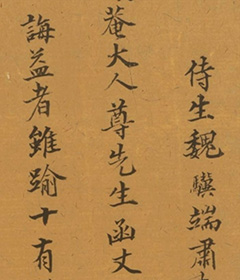 侍生魏驥端肅
菴大人尊先生函丈
誨益者雖踰十有